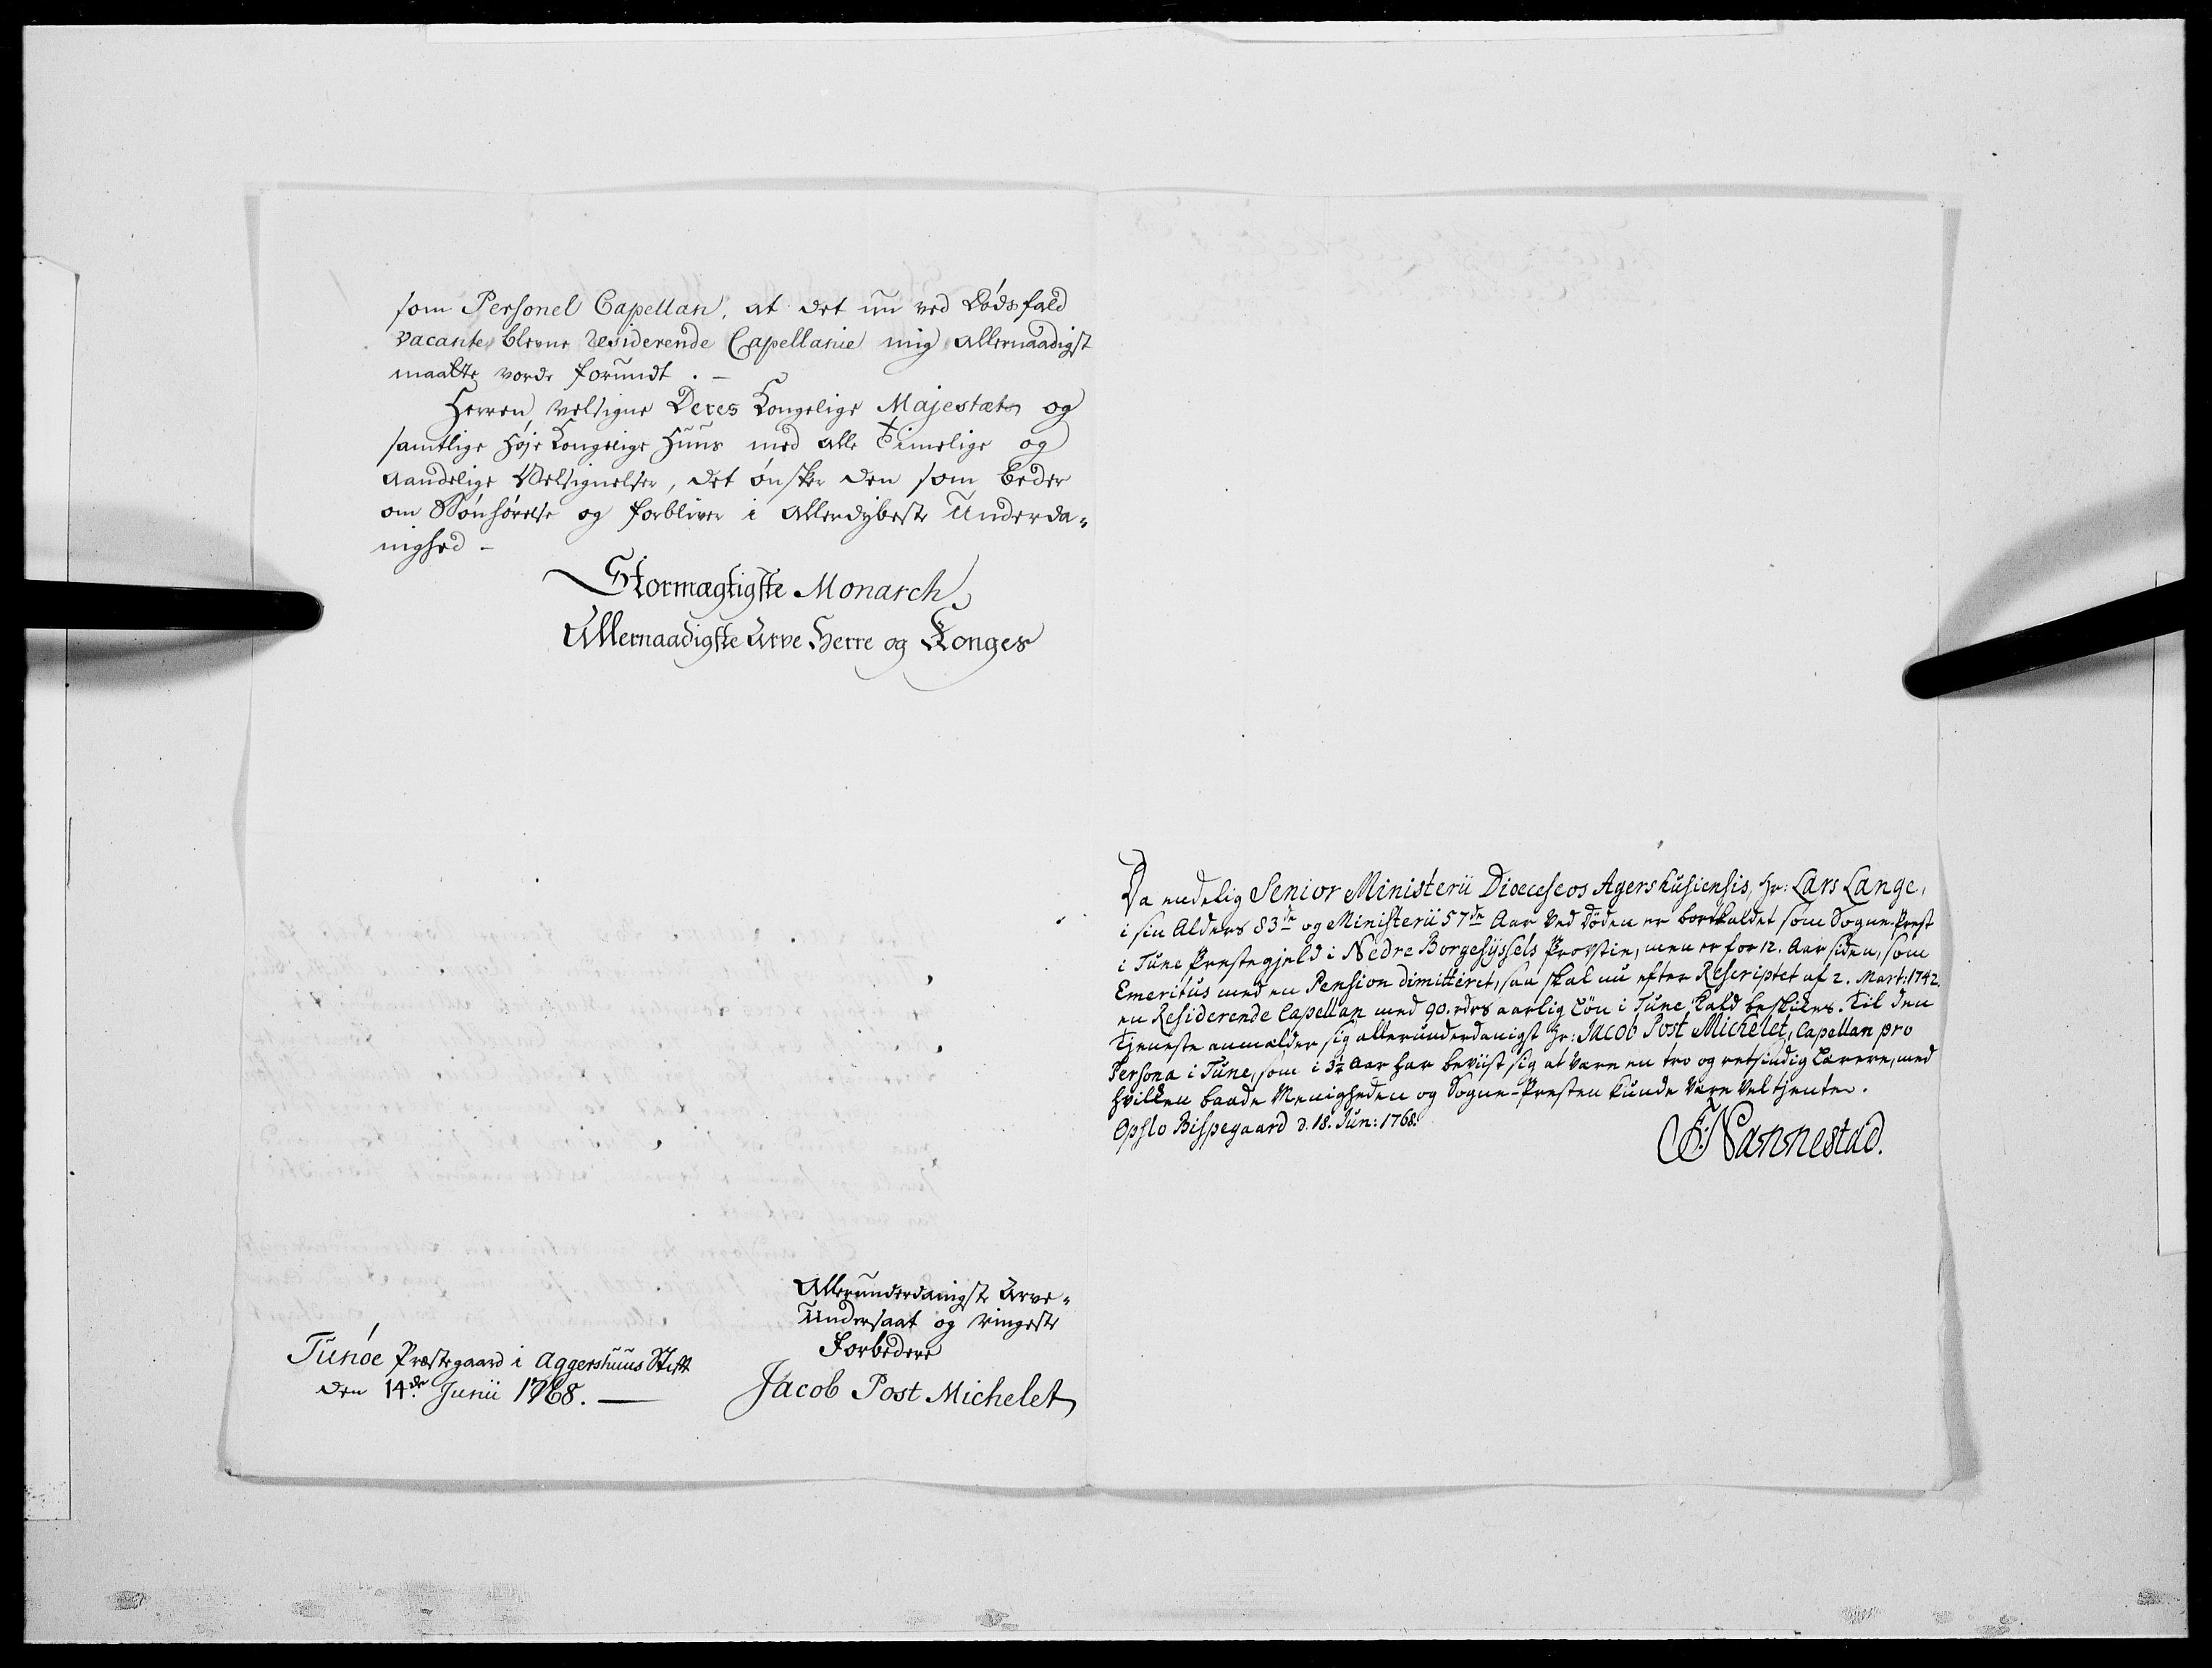 som Personel Capellan, at det nu ved Dødsfald
vacante blevne residerende Capellanie mig allernaadigst
maatte vorde forundt. —
Herren velsigne Deres Kongelige Majestæt og
samtlige Høje Kongelige Huus med alle Timelige og
aandelige Velsignelser, det ønsker den som beder
om Bønhørelse og forbliver i allerdybeste Underda-
nighed -
Stormægtigste Monarch
Allernaadigste Arve Herre og Konges
Allerunderdanigste Arve-
Undersaat og ringeste
Forbedere
Tunøe Præstegaard i Aggershuus Stift
den 14de Junii 1768. —
Jacob Post Michelet
Da endelig Senior Ministerii Dioeceseos Agershusiensis, Hr: Lars Lange,
i sin Alders 83de og Ministerii 57de Aar ved Döden er bortkaldet som Sogne-Prest
i Tune Prestegjeld i Nedre Borgesyssels Provstie, men er for 12. Aar siden, som
Emeritus med en Pension dimitteret, saa skal nu efter Rescriptet af 2. Mart: 1742.
en Residerende Capellan med 90. rdrs aarlig Lön i Tune Kald beskikes. Til den
Tjeneste anmelder sig allerunderdanigst Hr: Jacob Post Michelet, Capellan pro
Persona i Tune, som i 3½ Aar har beviist sig at være en tro og retsindig Lærere, med
hvilken baade Menigheden og Sogne-Presten kunde være vel tjente.
Opslo Bispegaard d. 18. Jun: 1768.
F: Nannestad.